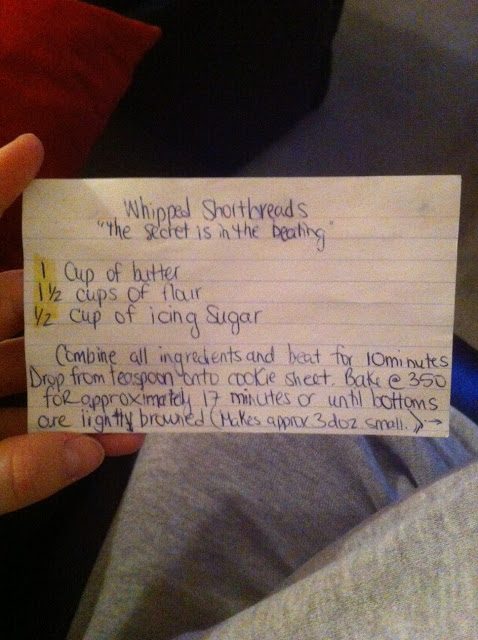 Whipped Shortbreads
"The secret is in the beating"
1 Cup of butter
1 1/2 cups of flair
1/2 cup of icing Sugar
Combine all ingredients and beat for 10 minutes
Drop from teaspoon onto cookie sheet. Bake @ 350
for approximately 17 minutes or until bottoms
are lightly browned (Makes approx 3 doz small.) →